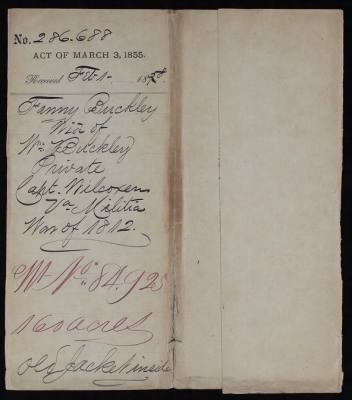 No. 286.688
ACT OF MARCH 3, 1855.
Received Feb 1- 18
Fanny Buckley
Wid of
Wm Buckley
Private
Capt. Wilcoxen
Va. Militia
War of 1812.
Wt No. 84.925
160 acres
Old Jacket inside